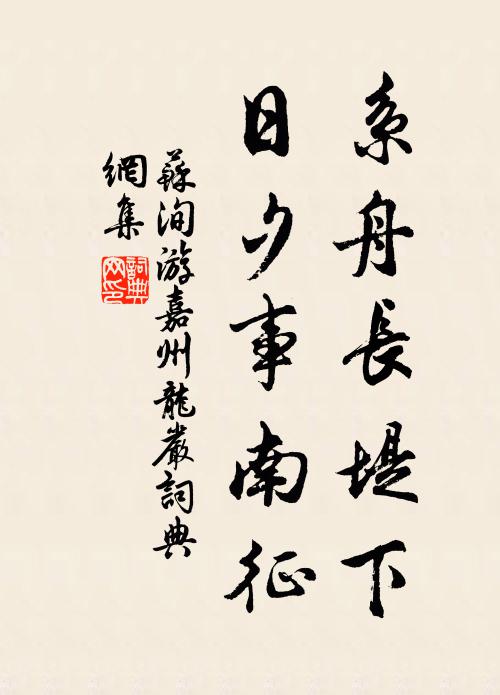 系舟長堤下
日夕事南征
蘇洵游嘉州龍巖詞典
網集
詞典
网印